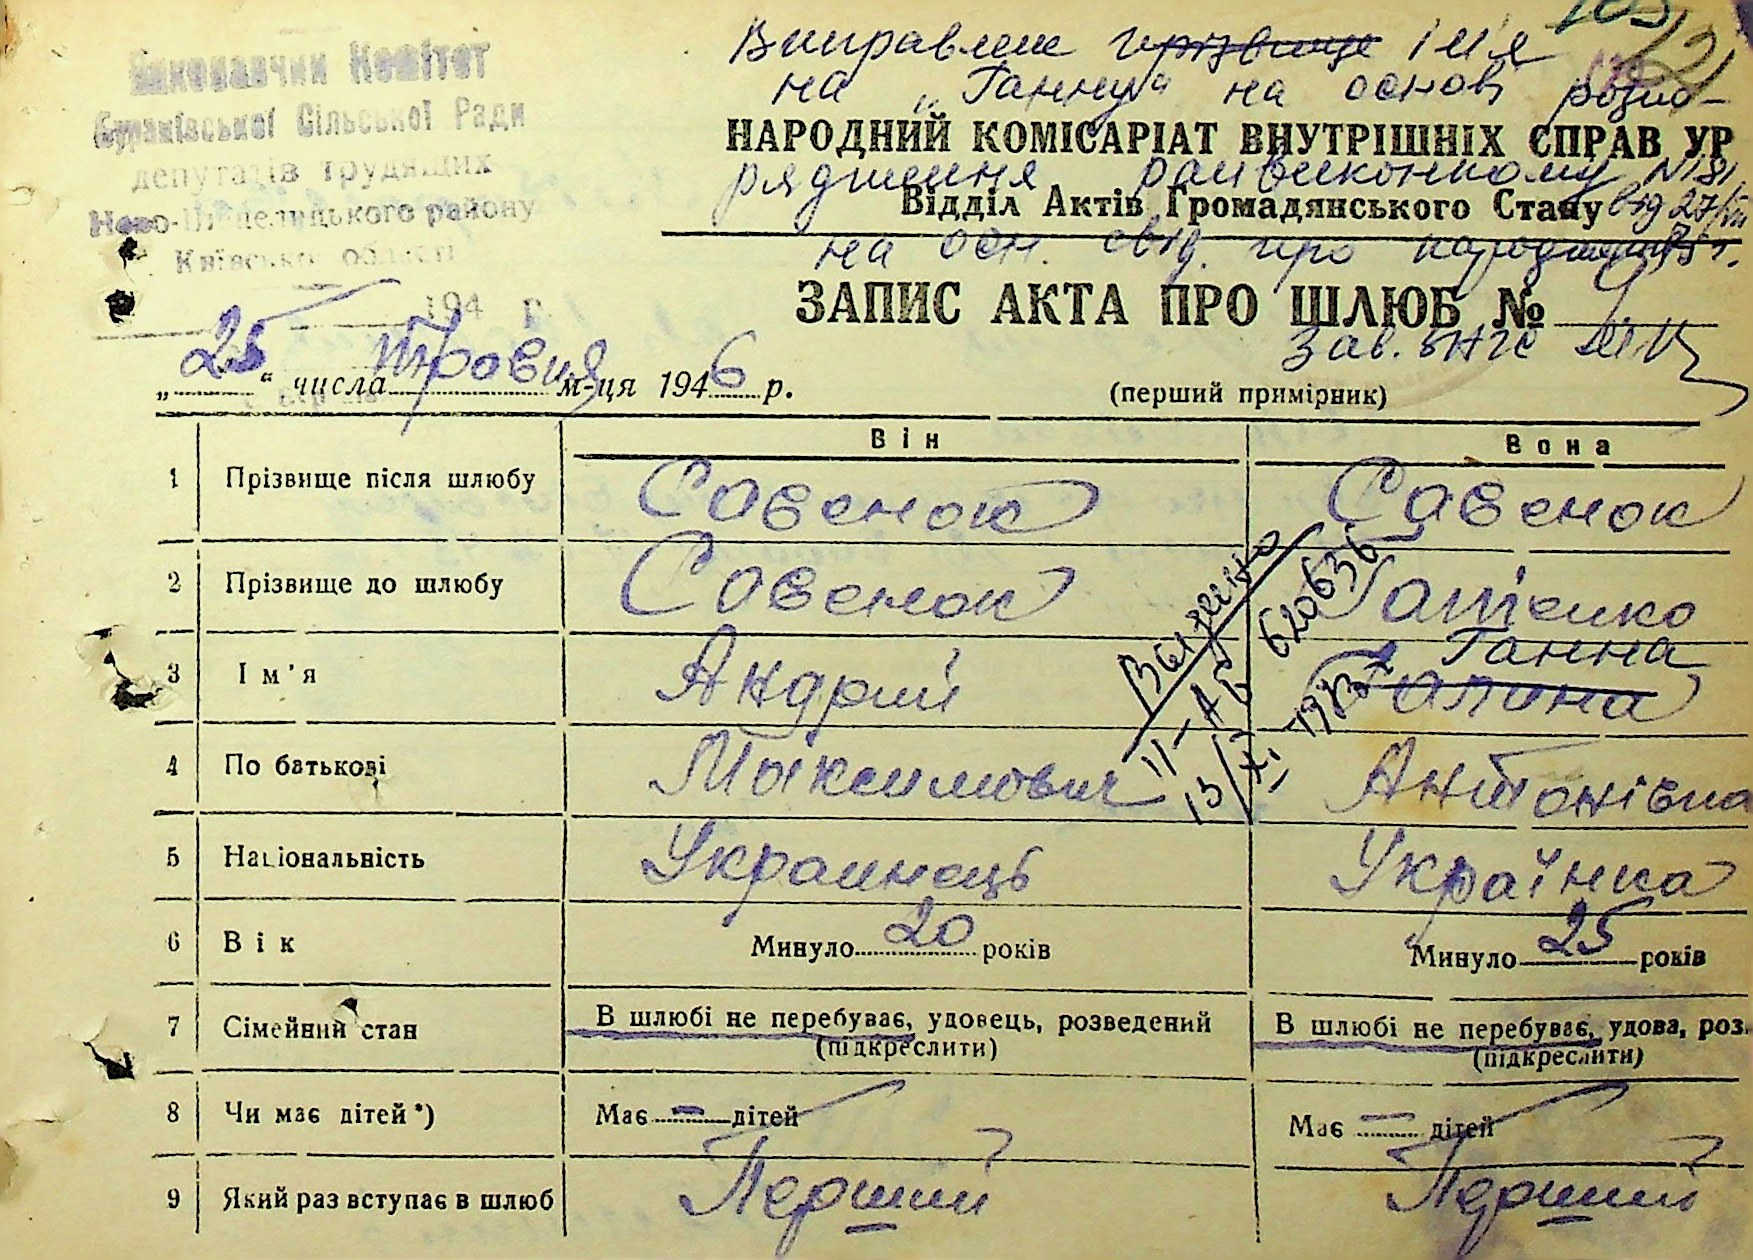 Виконавчий Комітет
Сільської Ради
депутатів трудящих
району
Київської області
194 р.
Виправлене прізвище ім'я
на „Ганну" на основ розпо-
НАРОДНИЙ КОМІСАРІАТ ВНУТРІШНІХ СПРАВ УР
рядження райвиконкому №181
Відділ Актів Громадянського Стану від 27/VIII
на осн. свід. про народження
ЗАПИС АКТА ПРО ШЛЮБ № 9
Зав. ЗАГС
„25" числа Травня м-ця 1946 р.
(перший примірник)
Він Вона
1 Прізвище після шлюбу Совенок Совенок
2 Прізвище до шлюбу Совенок Гатенко
Ганна
3 Ім'я Андрий Галина
4 По батькові Максимович Антонівна
Видано
II-АБ 620636
13/XI-1973
5 Національність Украинець Українка
6 Вік Минуло 20 років Минуло 25 років
7 Сімейний стан В шлюбі не перебуває, удовець, розведений В шлюбі не перебуває, удова, роз.
(підкреслити) (підкреслити)
8 Чи має дітей *) Має — дітей Має — дітей
9 Який раз вступає в шлюб Перший Перший